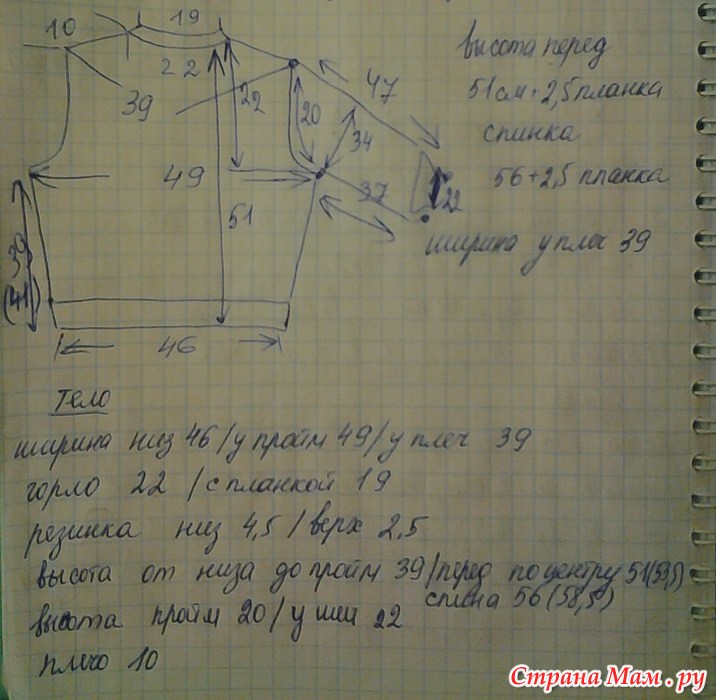 10
19
22
39
22
20
47
34
49
37
22
51
39
(41)
46
высота перед
51 см + 2,5 планка
спинка
56 + 2,5 планка
ширина у плеч 39
Тело
ширина низ 46 / у пройм 49 / у плеч 39
горло 22 / с планкой 19
резинка низ 4,5 / верх 2,5
высота от низа до пройм 39 / перед по центру 51 (53,5)
спина 56 (58,5)
высота пройм 20 / у шеи 22
плечо 10
Страна Мам.ру